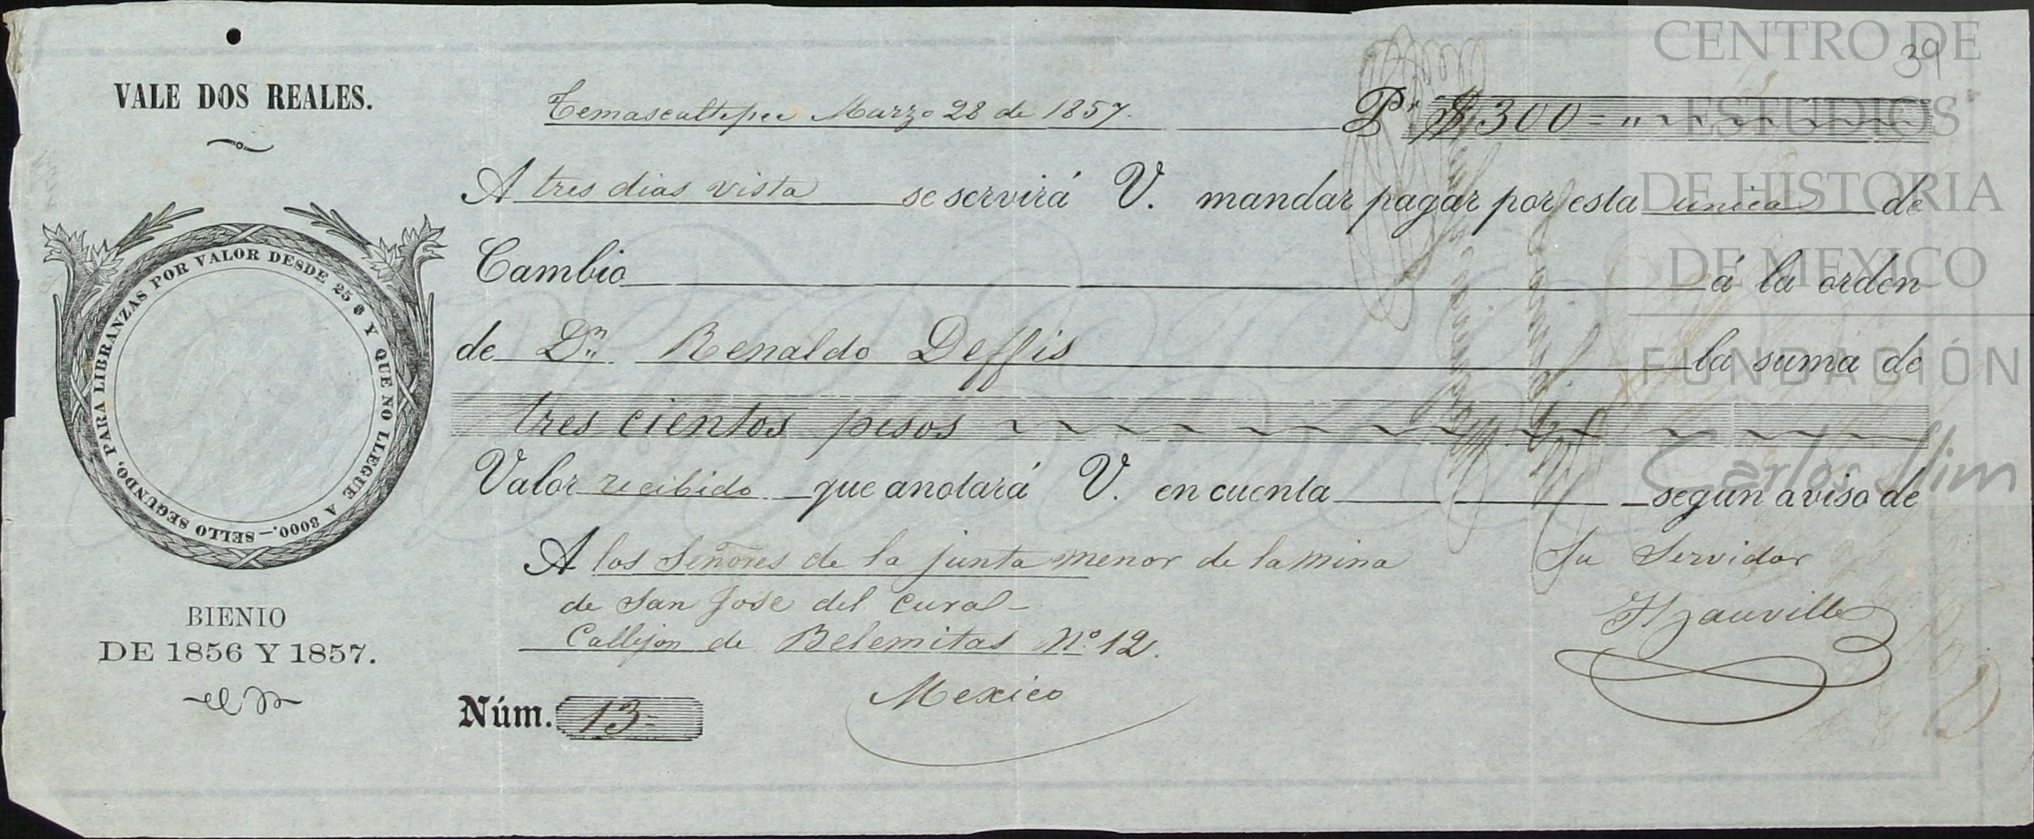 VALE DOS REALES.
PARA LIBRANZAS POR VALOR DESDE 25 $ Y QUE NO LLEGUE A 3000.—SELLO SEGUNDO,
BIENIO
DE 1856 Y 1857.
39
Temascaltepec Marzo 28 de 1857. Pr. $ 300 = "
A tres dias vista se servirá V. mandar pagar por esta unica de
Cambio á la orden
de Dn. Renaldo Deffis la suma de
tres cientos pesos
Valor recibido que anotará V. en cuenta segun aviso de
A los Señores de la junta menor de la mina Su Servidor
de San Jose del Cural
Callejon de Belemitas No. 12.
Mexico
Núm. 13
CENTRO DE
ESTUDIOS
DE HISTORIA
DE MEXICO
FUNDACIÓN
Carlos Slim